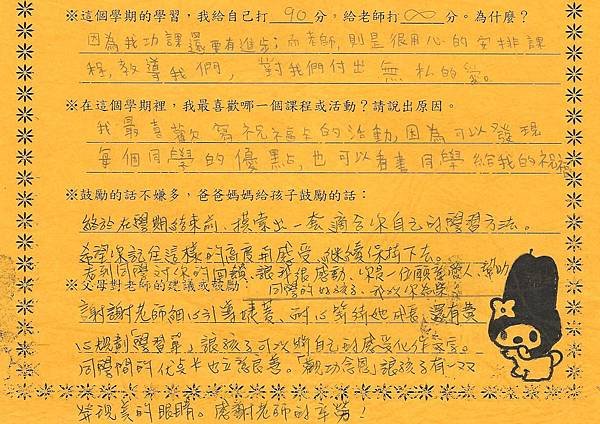 ※這個學期的學習，我給自己打 90 分，給老師打 ∞ 分。為什麼？
因為我功課還要有進步；而老師，則是很用心的安排課
程，教導我們，對我們付出無私的愛。
※在這個學期裡，我最喜歡哪一個課程或活動？請說出原因。
我最喜歡寫祝福卡的活動，因為可以發現
每個同學的優點，也可以看看同學給我的祝福
※鼓勵的話不嫌多，爸爸媽媽給孩子鼓勵的話：
終於在學期結束前，摸索出一套適合你自己的學習方法。
希望你記住這樣的高度和感受，繼續保持下去。
看到同學對你的回饋，讓我很感動，你是一位願意幫助
同學的好孩子，我以你為榮
※父母對老師的建議或鼓勵：
謝謝老師細心引導捷旻，耐心等待她成長，還有費
心規劃「學習單」，讓孩子可以將自己的感受化作文字。
同學間的優點卡也立意良善。「觀功念恩」讓孩子有一双
發現美的眼睛。感謝老師的辛勞！